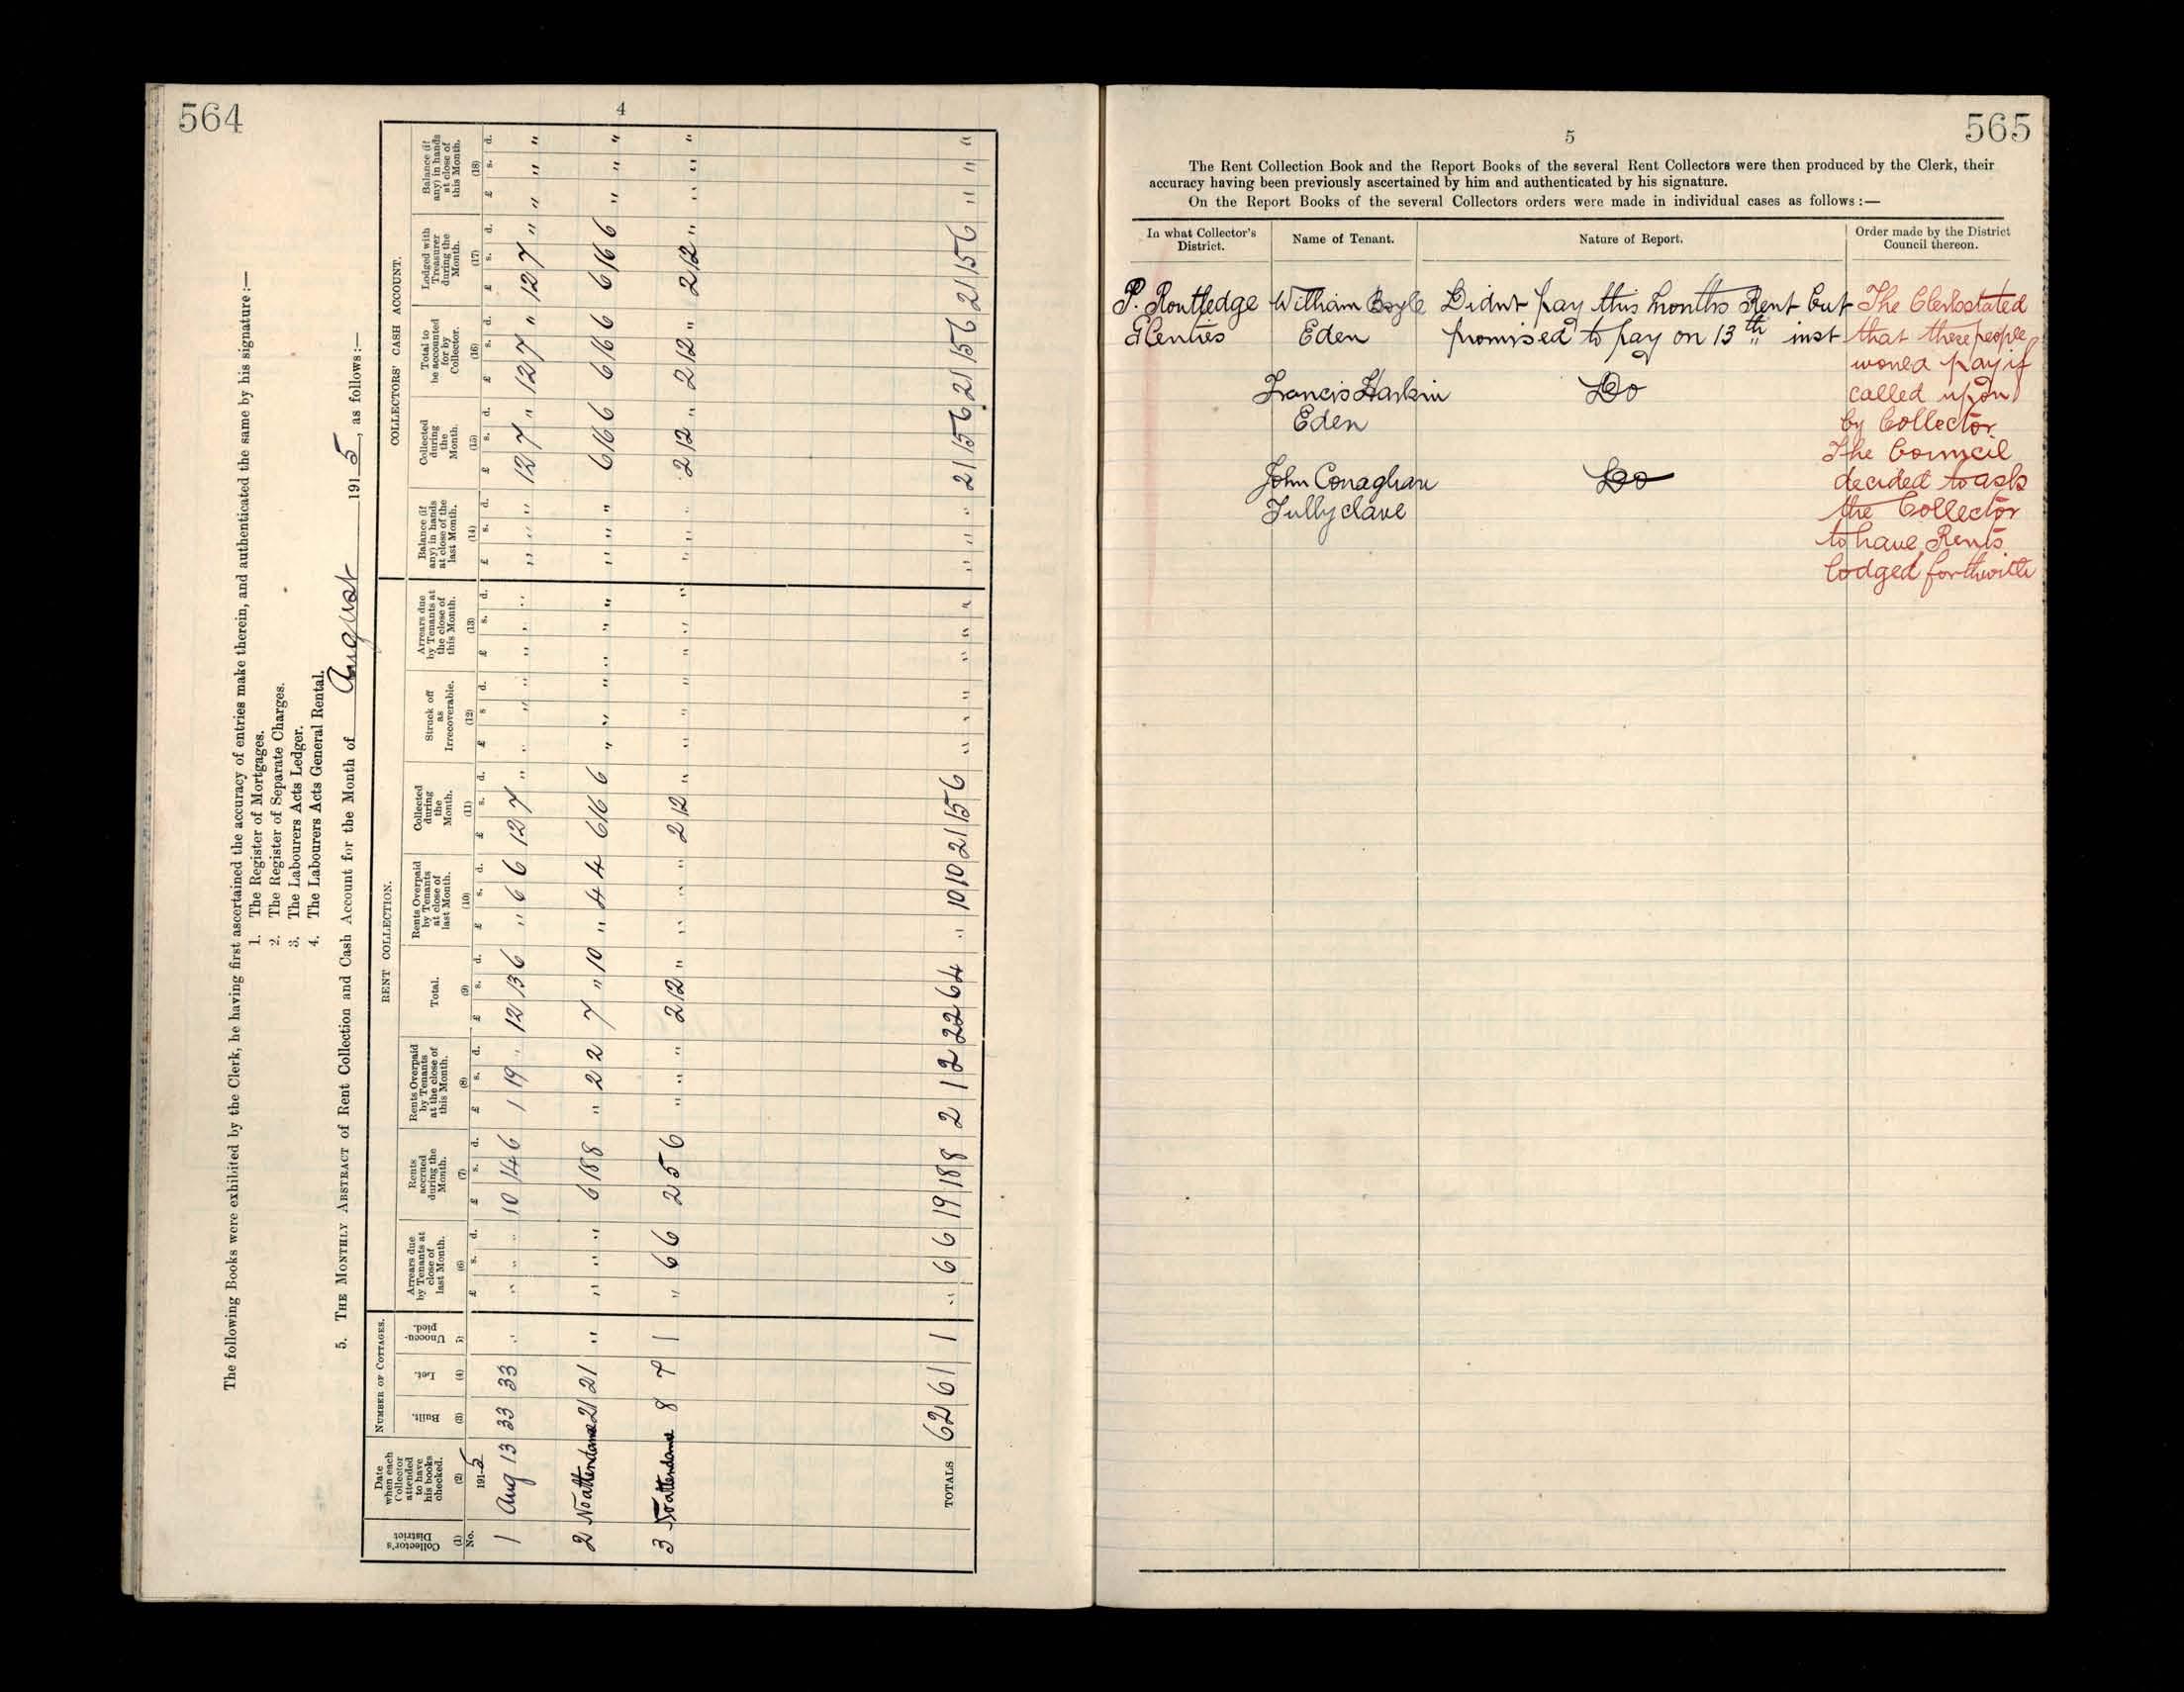 564
4
The following Books were exhibited by the Clerk, he having first ascertained the accuracy of entries make therein, and authenticated the same by his signature :—
1. The Register of Mortgages.
2. The Register of Separate Charges.
3. The Labourers Acts Ledger.
4. The Labourers Acts General Rental.
5. THE MONTHLY ABSTRACT of Rent Collection and Cash Account for the Month of August 1915, as follows:—
NUMBER OF COTTAGES. RENT COLLECTION. COLLECTORS' CASH ACCOUNT.
Collector's District (1) No.
Date when each Collector attended to have his books checked. (2) 1915
Built. (3)
Let. (4)
Unoccu-pied. (5)
Arrears due by Tenants at close of last Month. (6) £ s. d.
Rents accrued during the Month. (7) £ s. d.
Rents Overpaid by Tenants at the close of this Month. (8) £ s. d.
Total. (9) £ s. d.
Rents Overpaid by Tenants at close of last Month. (10) £ s. d.
Collected during the Month. (11) £ s. d.
Struck off as Irrecoverable. (12) £ s d.
Arrears due by Tenants at the close of this Month. (13) £ s. d.
Balance (if any) in hands at close of the last Month. (14) £ s. d.
Collected during the Month. (15) £ s. d.
Total to be accounted for by Collector. (16) £ s. d.
Lodged with Treasurer during the Month. (17) £ s. d.
Balance (if any) in hands at close of this Month. (18) £ s. d.
1 Aug 13 33 33 " " " " 10 14 6 1 19 " 12 13 6 " 6 6 12 7 " " " " " " " " " " 12 7 " 12 7 " 12 7 " " " "
2 No attendance 21 21 " " " " 6 18 8 " 2 2 7 " 10 " 4 4 6 16 6 " " " " " " " " " 6 16 6 6 16 6 6 16 6 " " "
3 No attendance 8 7 1 " 6 6 2 5 6 " " " 2 12 " " " " 2 12 " " " " " " " " " " 2 12 " 2 12 " 2 12 " " " "
TOTALS 62 61 1 " 6 6 19 18 8 2 1 2 22 6 4 " 10 10 21 15 6 " " " " " " " " " 21 15 6 21 15 6 21 15 6 " " "
565
5
The Rent Collection Book and the Report Books of the several Rent Collectors were then produced by the Clerk, their
accuracy having been previously ascertained by him and authenticated by his signature.
On the Report Books of the several Collectors orders were made in individual cases as follows :—
In what Collector's District. Name of Tenant. Nature of Report. Order made by the District Council thereon.
P. Routledge William Boyle Didnt pay this months Rent but The Clerk stated
Glenties Eden promised to pay on 13th inst that these people
would pay if
Francis Harkin Do called upon
Eden by Collector
The Council
John Conaghan Do decided to ask
Tullyclave the Collector
to have Rents
lodged forthwith